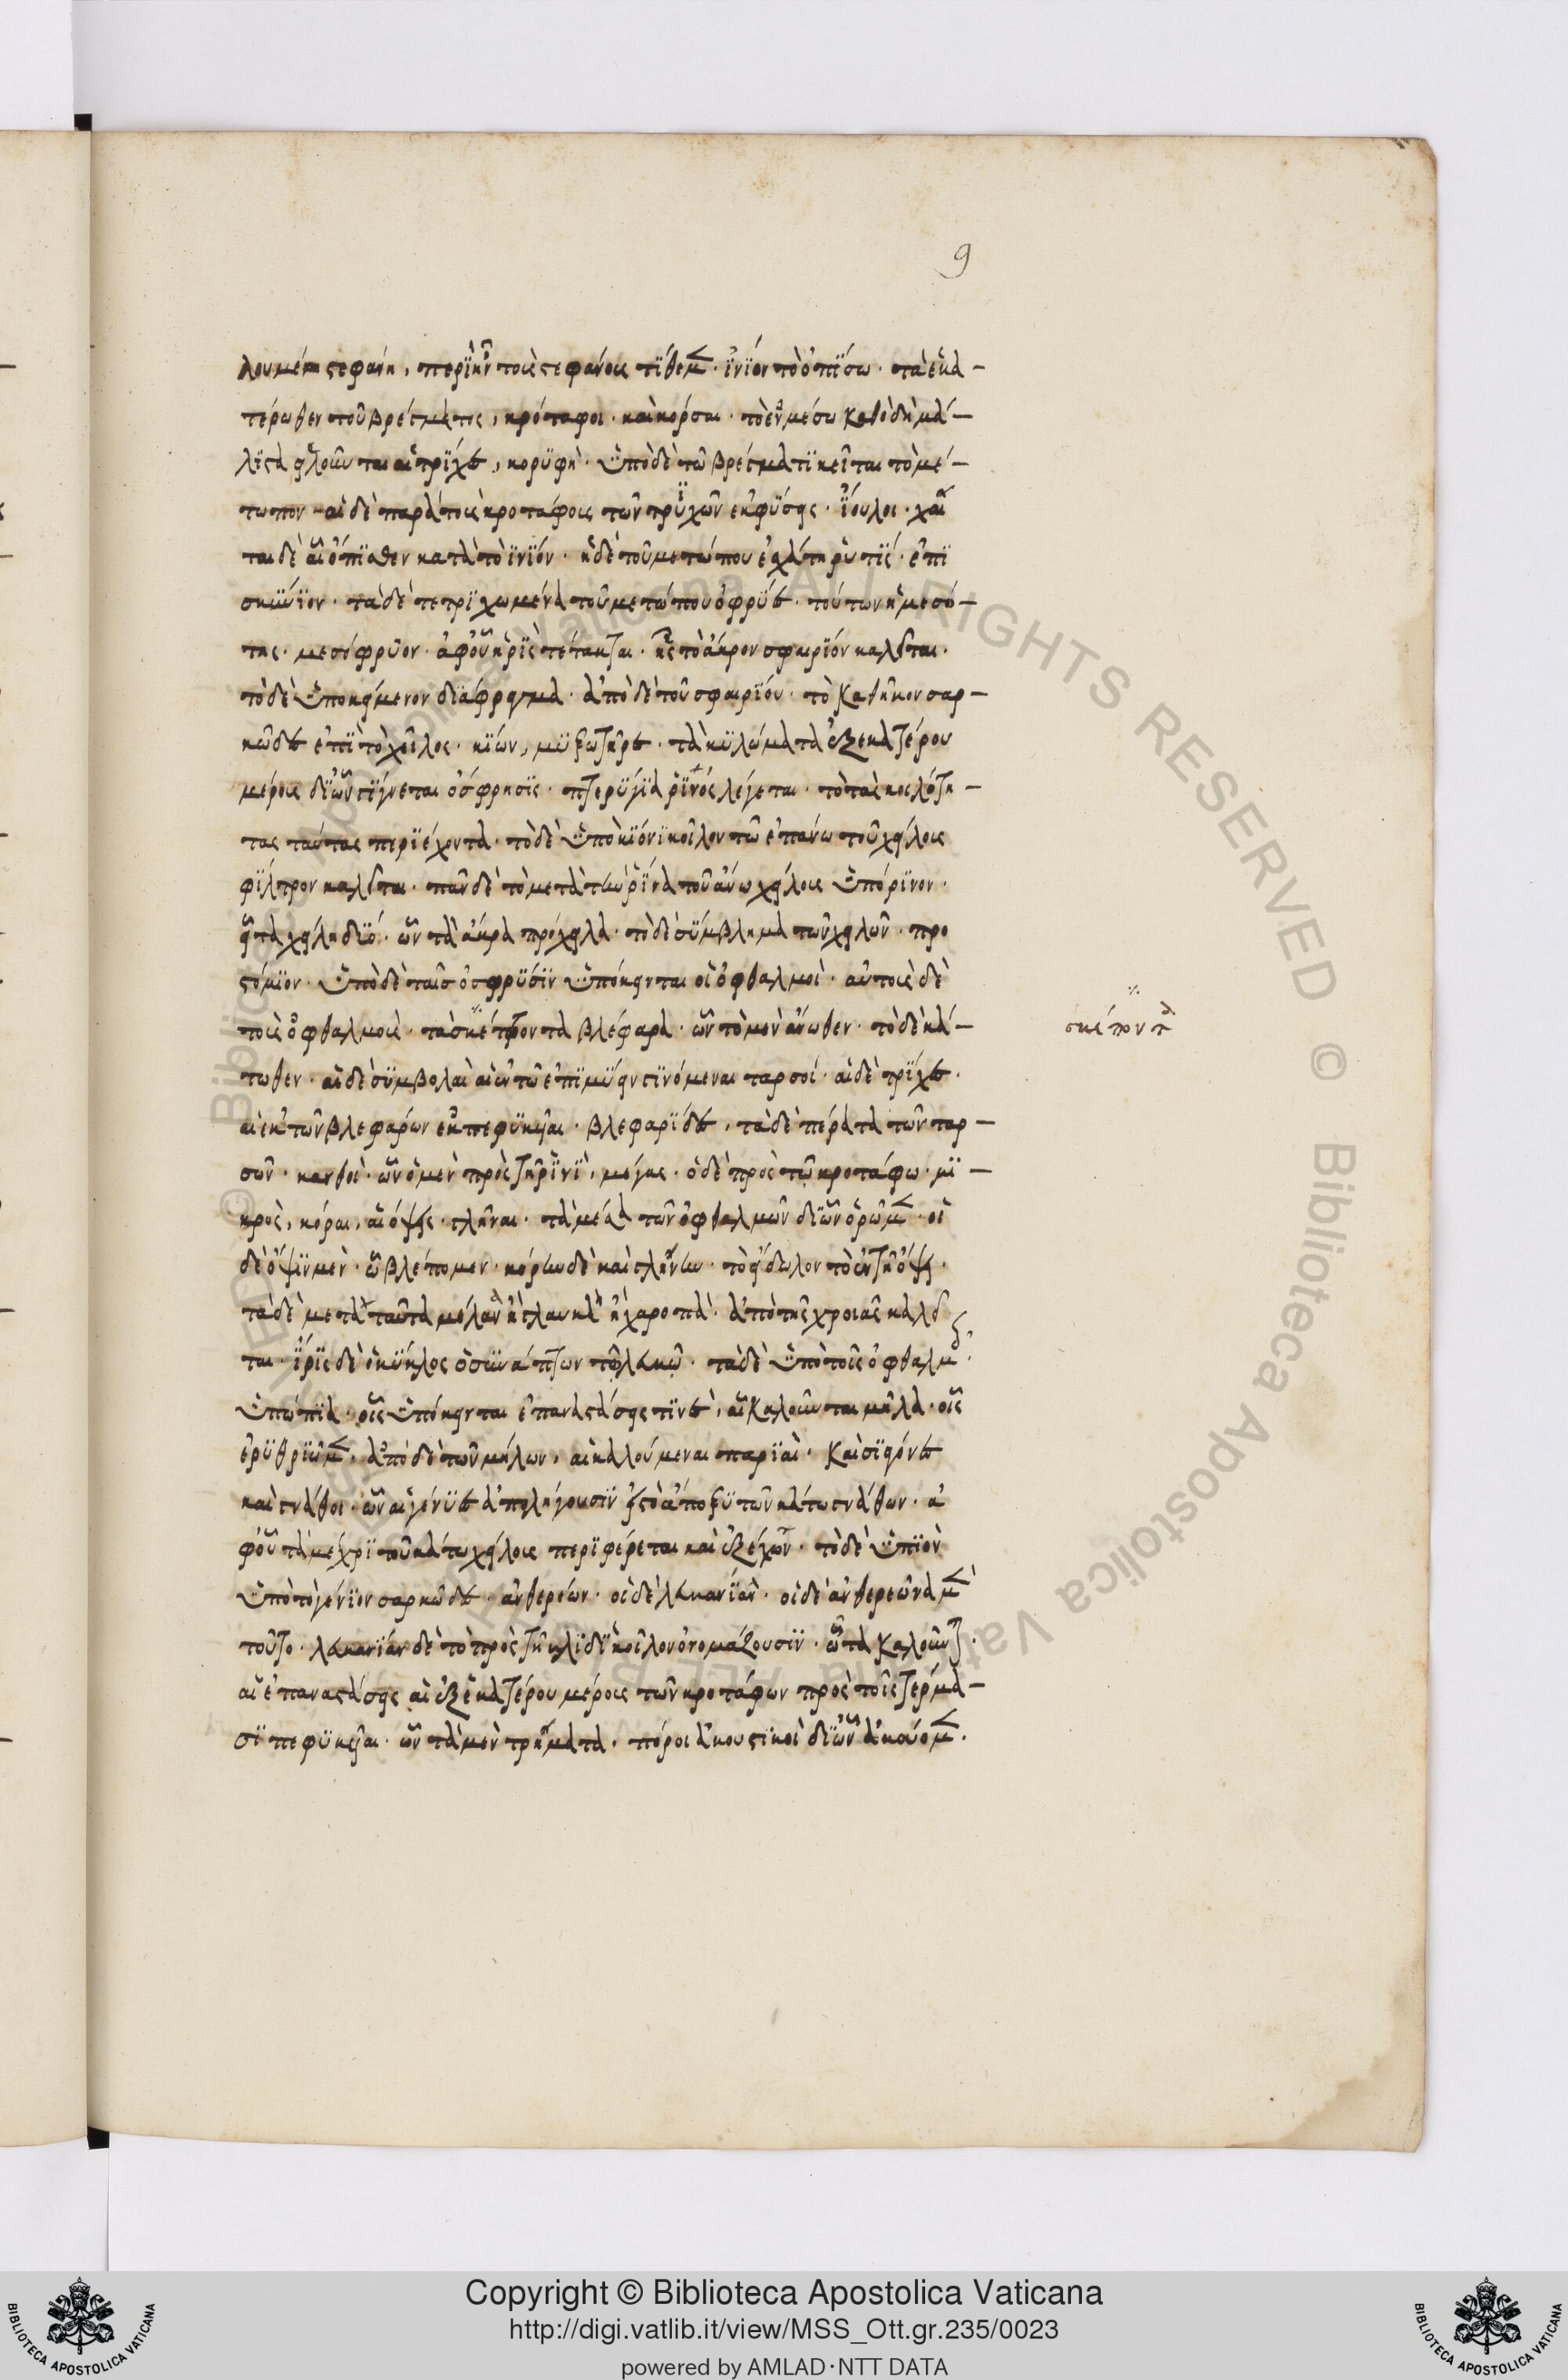 9
λουμένη στεφάνη, περὶ ἣν τοὺς στεφάνους τίθεμεν· ἰνίον τὸ ὀπίσω· τὰ ἑκα-
τέρωθεν τοῦ βρέγματος, κρόταφοι· καὶ κόρσαι· τὸ ἐν μέσω καθὸ δὴ μά-
λιστα εἱλοῦνται αἱ τρίχες, κορυφὴ· ὑπὸ δὲ τῶ βρέγματι κεῖται τὸ μέ-
τωπον· αἱ δὲ παρὰ τοὺς κροτάφους τῶν τριχῶν ἐκφύσεις· ἴουλοι· χαῖ
ται δὲ αἱ ὄπισθεν κατὰ τὸ ἰνίον· ἡ δὲ τοῦ μετώπου ἐσχάτη ῥυτίς· ἐπι
σκύνιον· τὰ δὲ τετριχωμένα τοῦ μετώπου ὀφρύες· τούτων ἡ μεσό-
της· μεσόφρυον· ἀφ' οὗ ἡ ῥὶς τέτακται· ἧς τὸ ἄκρον σφαιρίον καλεῖται·
τὸ δὲ ὑποκείμενον διάφραγμα· ἀπὸ δὲ τοῦ σφαιρίου· τὸ καθῆκον σαρ-
κῶδες ἐπὶ τὸ χεῖλος· κίων, μυξωτῆρες· τὰ κυλώματα ἐξ ἑκατέρου
μέρους δι' ὧν γίγνεται ὄσφρησις· πτερύγια ῥινὸς λέγεται· τὸ τὰς κοιλότη-
τας ταύτας περιέχοντα· τὸ δὲ ὑπὸ κίονι κοῖλον τῶ ἐπάνω τοῦ χείλους
φίλτρον καλεῖται· πᾶν δὲ τὸ μετὰ τὴν ῥῖνα τοῦ ἄνω χείλους ὑπόρινον·
εἶτα χείλη δύο· ὧν τὰ ἄκρα πρόχειλα· τὸ δὲ σύμβλημα τῶν χειλῶν· προ
στόμιον· ὑπὸ δὲ ταῖς ὀσφρύσιν ὑπόκεινται οἱ ὀφθαλμοὶ· αὐτοὺς δὲ
τοὺς ὀφθαλμοὺς· τὰ σκέποντα βλέφαρα· ὧν τὸ μὲν ἄνωθεν· τὸ δὲ κά-
σκέποντα
τωθεν· αἱ δὲ συμβολαὶ αἱ ἐν τῶ ἐπιμύειν γινόμεναι ταρσοί· αἱ δὲ τρίχες·
αἱ ἐκ τῶν βλεφάρων ἐκπεφύκασι· βλεφαρίδες, τὰ δὲ πέρατα τῶν ταρ-
σῶν· κανθοὶ· ὧν ὁ μὲν πρὸς τῆ ῥινὶ, μέγας· ὁ δὲ πρὸς τῶ κροτάφω· μι-
κρὸς, κόραι, αἱ ὄψεις· γλῆναι· τὰ μέσα τῶν ὀφθαλμῶν δι' ὧν ὁρῶμεν· οἱ
δὲ ὄψιν μὲν· ὧ βλέπομεν· κόρην δὲ καὶ γλήνην· τὸ εἴδωλον τὸ ἐν τῆ ὄψει·
τὰ δὲ μετὰ ταῦτα μέλανα ἢ γλαυκὰ ἢ χαροπὰ· ἀπὸ τῆς χροιᾶς καλεῖ
ται· ἶρις δὲ ὁ κύκλος ὁ συνάπτων τῶ λευκῶ· τὰ δὲ ὑπὸ τοῖς ὀφθαλμοῖς·
ὑπώπια· οἷς ὑπόκεινται ἐπαναστάσεις τινὲς, αἳ καλοῦνται μῆλα· οἷς
ἐρυθριῶμεν, ἀπὸ δὲ τῶν μήλων, αἱ καλούμεναι παριαὶ· καὶ σιαγόνες
καὶ γνάθοι· ὧν αἱ γένυες ἀπολήγουσιν εἰς τὸ ἄποξυ τῶν κάτω γνάθων· ἀ
φ' οὗ τὰ μέχρι τοῦ κάτω χείλους περιφέρεται καὶ ἐξέχων· τὸ δὲ ὑπιὸν
ὑπὸ τὸ γένιον σαρκῶδες· ἀνθερεών· οἱ δὲ λευκανίαν· οἱ δὲ ἀνθερεῶνα μὲν
τοῦτο· λευκανίαν δὲ τὸ πρὸς τῆ κλιδὶ κοῖλον ὀνομάζουσιν· ὦτα καλοῦνται·
αἱ ἐπαναστάσεις αἱ ἐξ ἑκατέρου μέρους τῶν κροτάφων πρὸς τοῖς τέρμα-
σι πεφύκασι· ὧν τὰ μὲν τρήματα· πόροι ἀκουστικοὶ δι' ὧν ἀκούομεν·
© Biblioteca Apostolica Vaticana ALL RIGHTS RESERVED
Copyright © Biblioteca Apostolica Vaticana
http://digi.vatlib.it/view/MSS_Ott.gr.235/0023
powered by AMLAD·NTT DATA
BIBLIOTECA APOSTOLICA VATICANA
BIBLIOTECA APOSTOLICA VATICANA